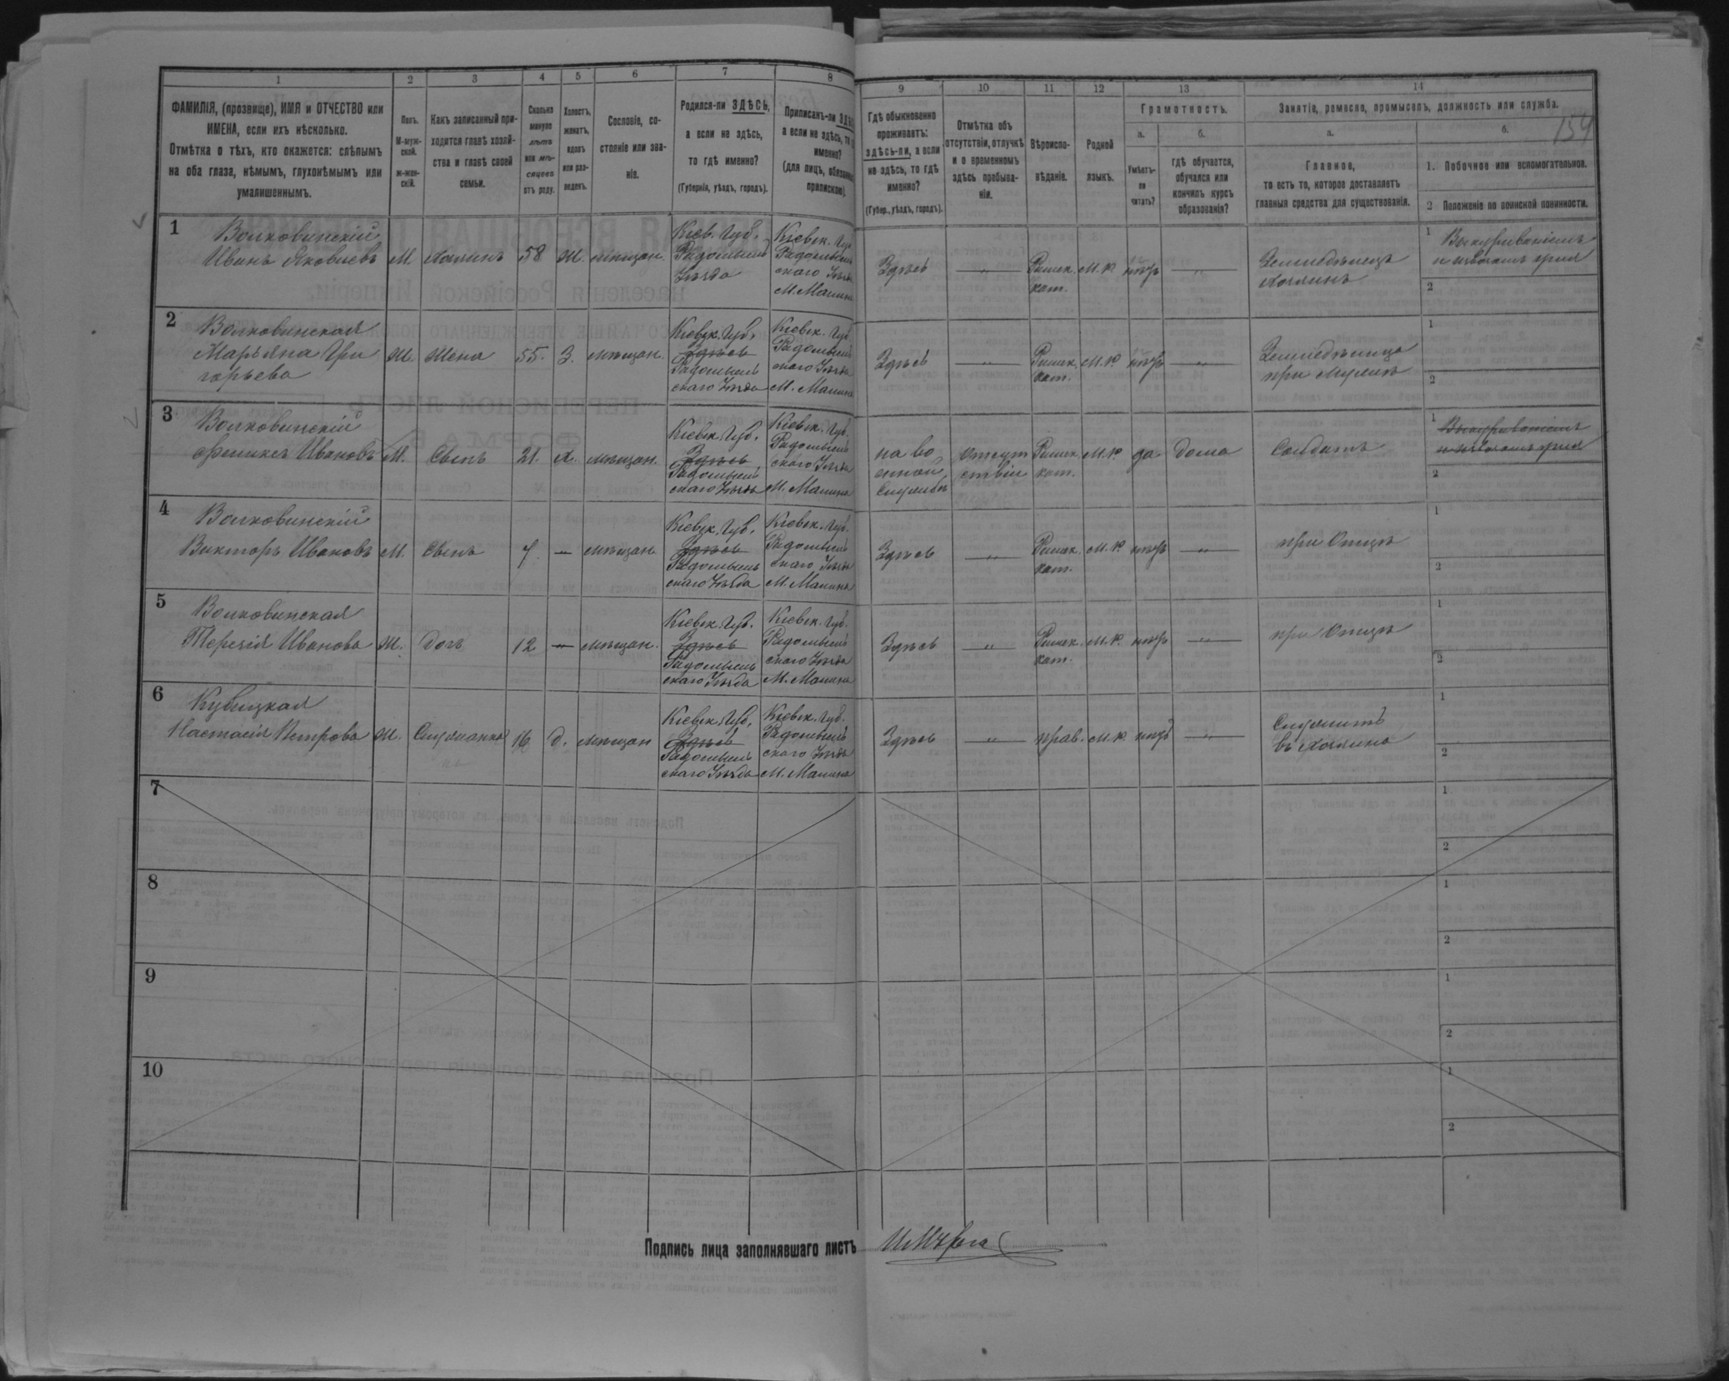 1 2 3 4 5 6 7 8 9 10 11 12 13 14
ФАМИЛІЯ, (прозвище), ИМЯ и ОТЧЕСТВО или
ИМЕНА, если ихъ нѣсколько.
Отмѣтка о тѣхъ, кто окажется: слѣпымъ
на оба глаза, нѣмымъ, глухонѣмымъ или
умалишеннымъ.
Полъ.
М-муж-
ской.
Ж-жен-
скій.
Какъ записанный при-
ходится главѣ хозяй-
ства и главѣ своей
семьи.
Сколько
минуло
лѣтъ
или мѣ-
сяцевъ
отъ роду.
Холостъ,
женатъ,
вдовъ
или раз-
веденъ.
Сословіе, со-
стояніе или зва-
ніе.
Родился-ли ЗДѢСЬ,
а если не здѣсь,
то гдѣ именно?
(Губернія, уѣздъ, городъ).
Приписанъ-ли
а если не здѣсь, то
именно?
(для лицъ,
припискою).
Гдѣ обыкновенно
проживаетъ:
здѣсь-ли, а если
не здѣсь, то гдѣ
именно?
(Губер., уѣздъ, городъ).
Отмѣтка объ
отсутствіи, отлучкѣ
и о временномъ
здѣсь пребыва-
ніи.
Вѣроиспо-
вѣданіе.
Родной
языкъ.
Грамотность.
а. б.
Умѣетъ-
ли
читать?
гдѣ обучается,
обучался или
кончилъ курсъ
образованія?
Занятіе, ремесло, промыселъ, должность или служба.
а. б.
154
Главное,
то есть то, которое доставляетъ
главныя средства для существованія.
1. Побочное или вспомогательное.
2 Положеніе по воинской повинности.
1
Волковинскій
Иванъ Яковлевъ М. Хозяинъ 58 Ж. мѣщан.
Кіев. Губ.
Радомысл
Уѣзда
Кіевск. Губ.
Радомысль
скаго Уѣзда
М. Малина
Здѣсь " Римск. кат. м. р нѣтъ "
Земледѣлецъ
хозяинъ
1
2
2
Волковинская
Марьяна Гри
горьева Ж. Жена 55. З. мѣщан.
Кіевск. Губ.
Здѣсь
Радомысль
скаго Уѣзда
Кіевск. Губ.
Радомысль
скаго Уѣзда
М. Малина
Здѣсь " Римск. кат. м. р нѣтъ "
Земледѣлица
при мужѣ
1
2
3
Волковинскій
Феликсъ Ивановъ М. Сынъ 21. Х. мѣщан.
Кіевск. Губ.
Здѣсь
Радомысль
скаго Уѣзда
Кіевск. Губ.
Радомысль
скаго Уѣзда
М. Малина
на во
енной
службѣ
Отсут
ствіи
Римск. кат. м. р да дома Солдатъ
1
2
4
Волковинскій
Викторъ Ивановъ М. Сынъ 7. — мѣщан
Кіевск. Губ.
Здѣсь
Радомысль
скаго Уѣзда
Кіевск. Губ.
Радомысль
скаго Уѣзда
М. Малина
Здѣсь " Римск. кат. м. р нѣтъ " при Отцѣ
1
2
5
Волковинская
Терезія Иванова Ж. дочь 12 — мѣщан.
Кіевск. Губ.
Здѣсь
Радомысль
скаго Уѣзда
Кіевск. Губ.
Радомысль
скаго Уѣзда
М. Малина
Здѣсь " Римск. кат. м. р нѣтъ " при Отцѣ
1
2
6
Настасія Петрова Ж. Служанка 16 д. мѣщан
Кіевск. Губ.
Здѣсь
Радомысль
скаго Уѣзда
Кіевск. Губ.
Радомысль
скаго Уѣзда
М. Малина
Здѣсь " прав. м. р нѣтъ "
Служитъ
въ хозяина
1
2
7
1
2
8
1
2
9
1
2
10
1
2
Подпись лица заполнявшаго листъ